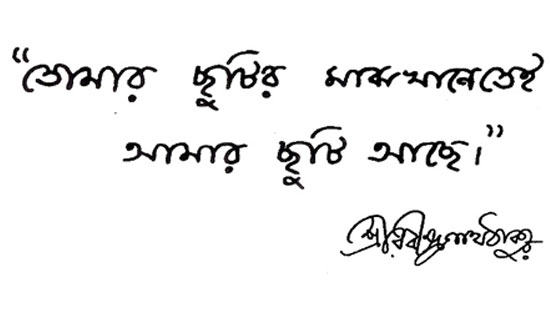 “তোমার ছুটির মাঝখানেতেই
আমার ছুটি আছে।”
শ্রীরবীন্দ্রনাথঠাকুর